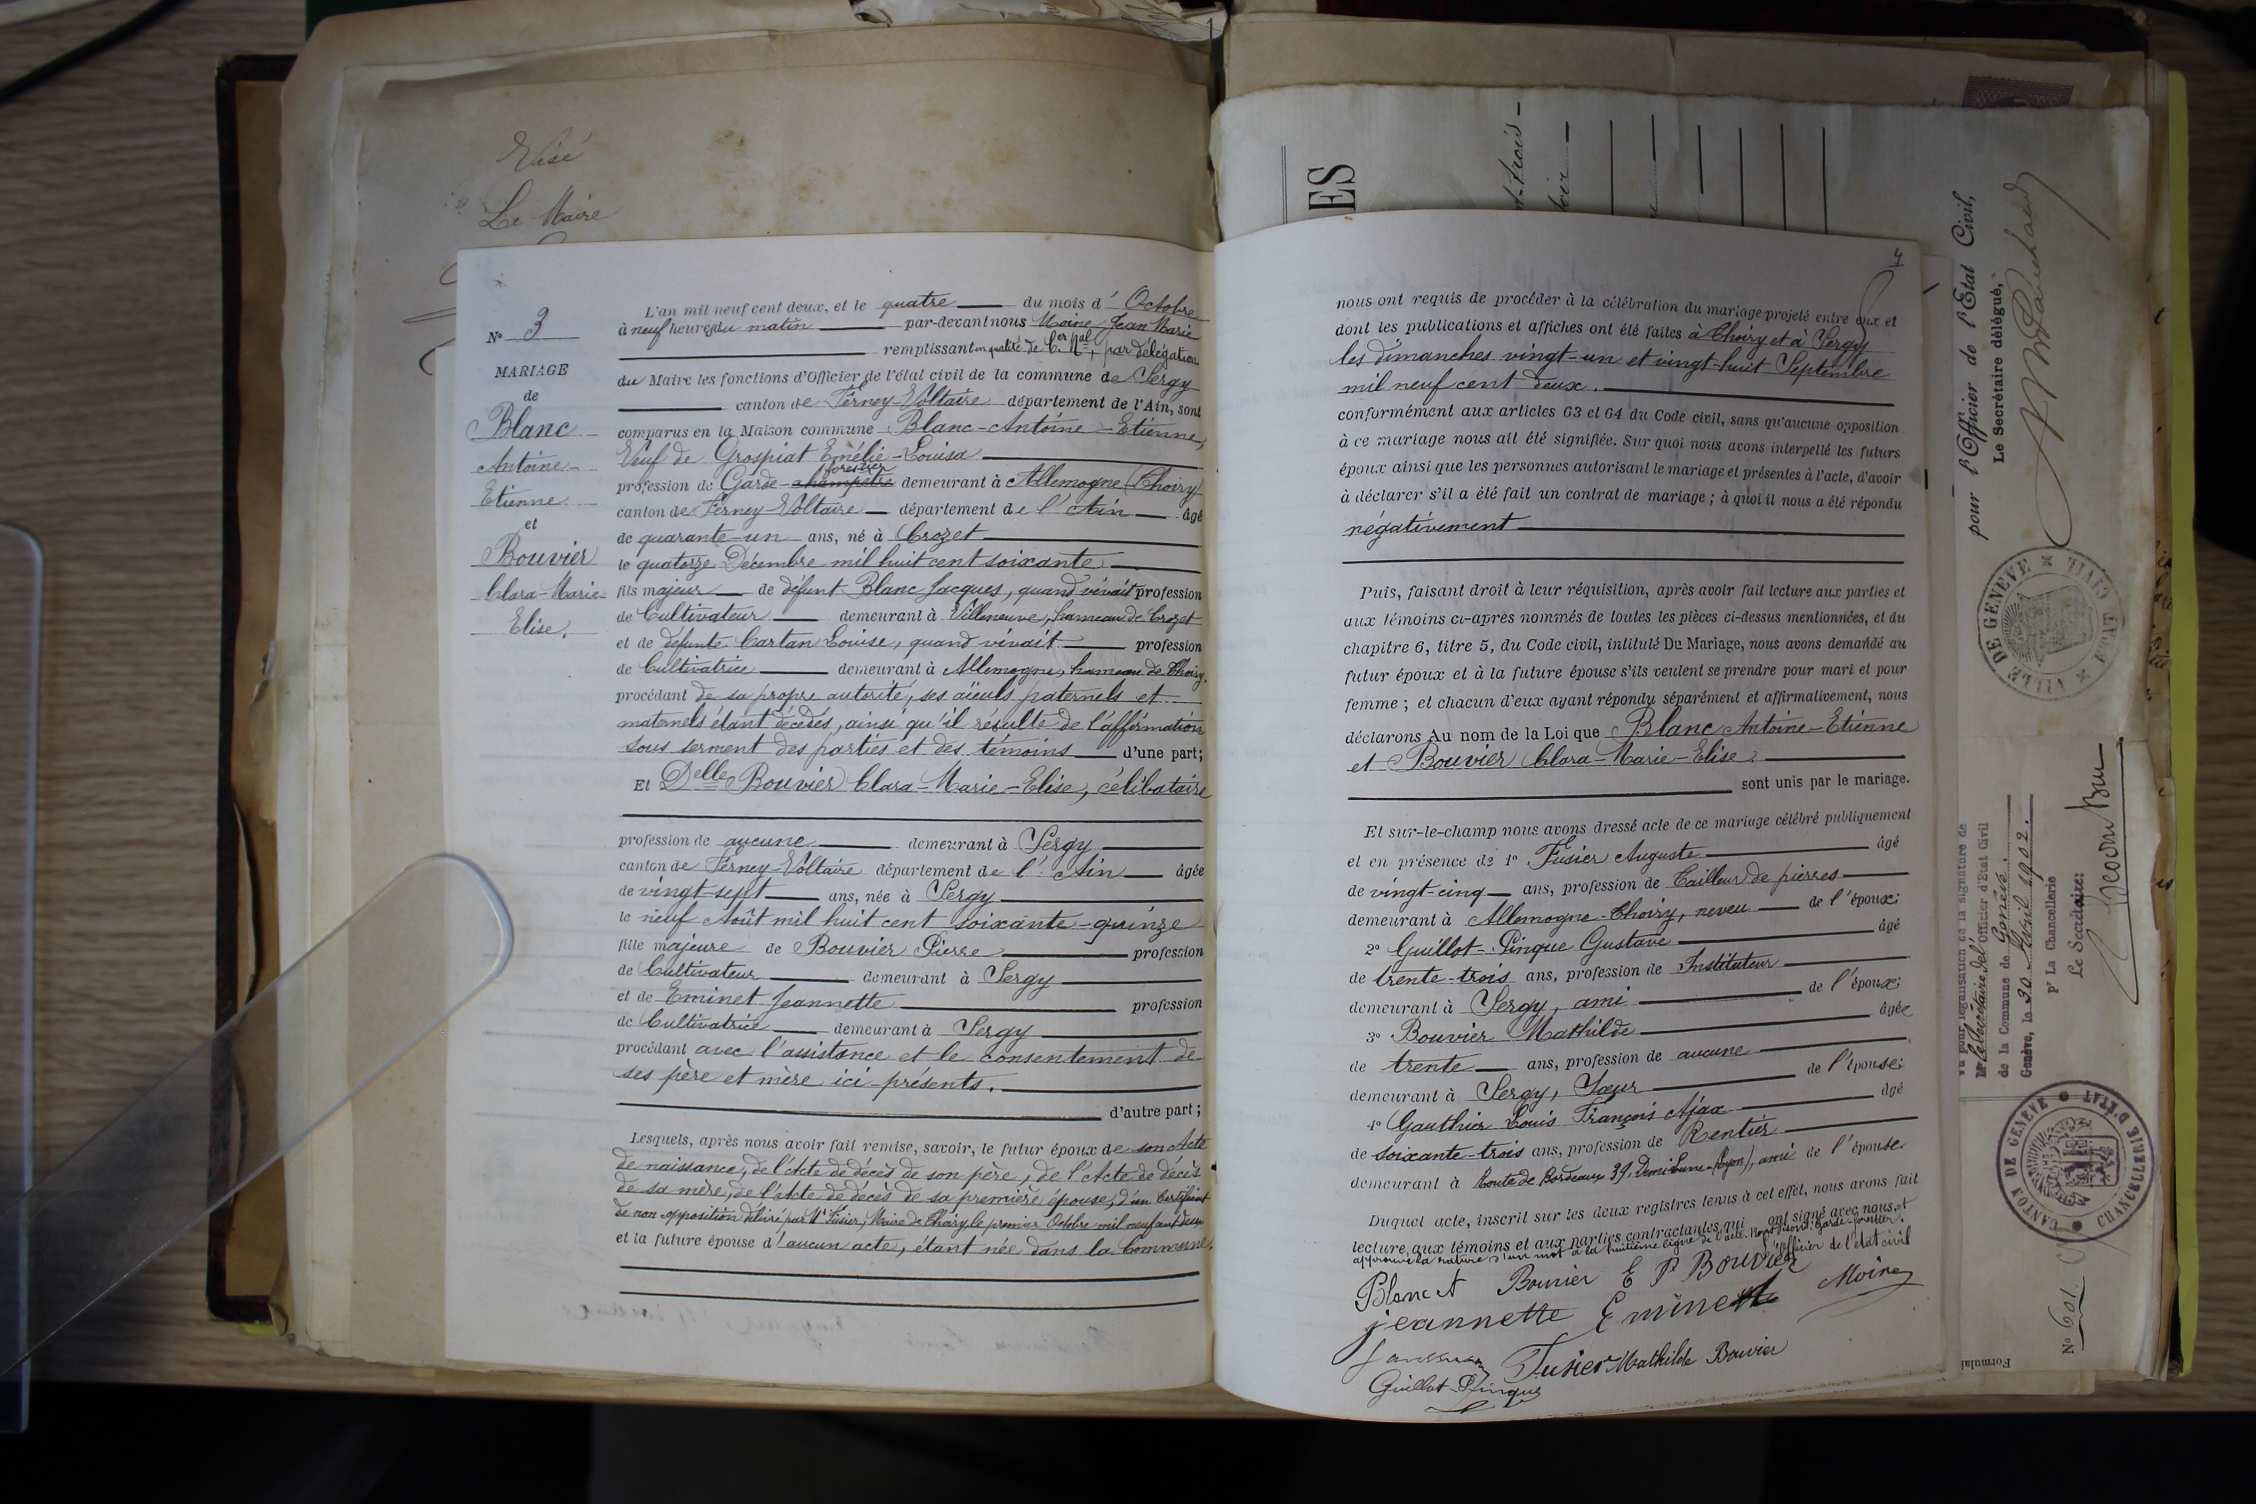 Visé
Le Maire
N° 3
MARIAGE
de
Blanc
Antoine
Etienne
et
Bouvier
Clara-Marie-
Elise.
L'an mil neuf cent deux, et le quatre du mois d'Octobre
à neuf heures du matin par-devant nous Moine Jean Marie
remplissant en qualité de Cer Mal, par délégation
du Maire les fonctions d'Officier de l'état civil de la commune de Sergy
canton de Ferney-Voltaire département de l'Ain, sont
comparus en la Maison commune Blanc-Antoine-Etienne,
Veuf de Grospiat Emélie-Louisa
forestier
profession de Garde-champêtre demeurant à Allemogne (Thoiry)
canton de Ferney-Voltaire département de l'Ain âgé
de quarante-un ans, né à Crozet
le quatorze Décembre mil huit cent soixante
fils majeur de défunt Blanc Jacques, quand vivait profession
de Cultivateur demeurant à Villeneuve, hameau de Crozet
et de défunte Cartan Louise, quand vivait profession
de Cultivatrice demeurant à Allemogne, hameau de Thoiry.
procédant de sa propre autorité, ses aïeuls paternels et
maternels étant décédés, ainsi qu'il résulte de l'affirmation
sous serment des parties et des témoins d'une part;
Et Delle Bouvier Clara-Marie-Elise, célibataire
profession de aucune demeurant à Sergy
canton de Ferney-Voltaire département de l'Ain âgée
de vingt-sept ans, née à Sergy
le neuf Août mil huit cent soixante-quinze
fille majeure de Bouvier Pierre profession
de Cultivateur demeurant à Sergy
et de Eminet Jeannette profession
de Cultivatrice demeurant à Sergy
procédant avec l'assistance et le consentement de
ses père et mère ici-présents.
d'autre part;
Lesquels, après nous avoir fait remise, savoir, le futur époux de son Acte
de naissance, de l'Acte de décès de son père, de l'Acte de décès
de sa mère, de l'Acte de décès de sa première épouse, d'un Certificat
de non-opposition délivré par Mr Fusier, Maire de Thoiry le premier Octobre mil neuf cent deux
et la future épouse d'aucun acte, étant née dans la Commune.
4
nous ont requis de procéder à la célébration du mariage projeté entre eux et
dont les publications et affiches ont été faites à Thoiry et à Sergy
les dimanches vingt-un et vingt-huit Septembre
mil neuf cent deux.
conformément aux articles 63 et 64 du Code civil, sans qu'aucune opposition
à ce mariage nous ait été signifiée. Sur quoi nous avons interpellé les futurs
époux ainsi que les personnes autorisant le mariage et présentes à l'acte, d'avoir
à déclarer s'il a été fait un contrat de mariage; à quoi il nous a été répondu
négativement
Puis, faisant droit à leur réquisition, après avoir fait lecture aux parties et
aux témoins ci-après nommés de toutes les pièces ci-dessus mentionnées, et du
chapitre 6, titre 5, du Code civil, intitulé Du Mariage, nous avons demandé au
futur époux et à la future épouse s'ils veulent se prendre pour mari et pour
femme; et chacun d'eux ayant répondu séparément et affirmativement, nous
déclarons Au nom de la Loi que Blanc Antoine-Etienne
et Bouvier Clara-Marie-Elise
sont unis par le mariage.
Et sur-le-champ nous avons dressé acte de ce mariage célébré publiquement
et en présence de 1° Fusier Auguste âgé
de vingt-cinq ans, profession de Tailleur de pierres
demeurant à Allemogne-Thoiry, neveu de l'époux;
2° Guillot-Pingue Gustave âgé
de trente-trois ans, profession de Instituteur
demeurant à Sergy, ami de l'époux;
3° Bouvier Mathilde âgée
de trente ans, profession de aucune
demeurant à Sergy, Sœur de l'épouse;
4° Gauthier Louis François Ajax âgé
de soixante-trois ans, profession de Rentier
demeurant à Route de Bordeaux 39, Demi Lune (Lyon), ami de l'épouse.
Duquel acte, inscrit sur les deux registres tenus à cet effet, nous avons fait
lecture aux témoins et aux parties contractantes qui ont signé avec nous, et
approuvé la rature d'un mot à la huitième ligne de l'acte. Garde-forestier.
l'officier de l'état civil
Blanc A Bouvier E P Bouvier
jeannette Eminet Moine
Fusier Mathilde Bouvier
Guillot-Pingue
ES
trois
pour l'Officier de l'Etat Civil,
Le Secrétaire délégué,
VILLE DE GENÈVE ETAT CIVIL
Vu pour légalisation de la signature de
Mr le Secrétaire del' Officier d'Etat Civil
de la Commune de Genève
Genève, le 30 Avril 1902.
Pr La Chancellerie
Le Secrétaire:
CANTON DE GENÈVE CHANCELLERIE D'ETAT
N° 601
Formulai